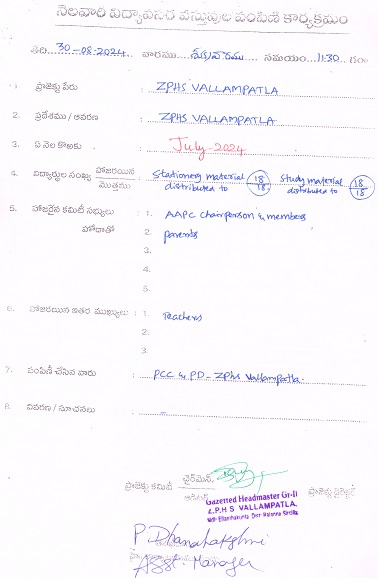 నెలవారి విద్యావసర వస్తువుల పంపిణి కార్యక్రమం
తేది 30-08-2024 వారము శుక్రవారము సమయం 11:30 గం
1. ప్రాజెక్టు పేరు : ZPHS VALLAMPATLA
2. ప్రదేశము / ఆవరణ : ZPHS VALLAMPATLA
3. ఏ నెల కొఱకు : July-2024
4. విద్యార్థుల సంఖ్య హాజరయిన/మొత్తము : Stationery material distributed to 18/18 Study material distributed to 18/18
5. హాజరైన కమిటీ సభ్యులు : 1. AAPC Chairperson & members
హోదాతో 2. parents
3.
4.
5.
6. హాజరయిన ఇతర ముఖ్యులు : 1. Teachers
2.
3.
7. పంపిణీ చేసిన వారు : PCC & PD - ZPHS Vallampatla.
8. వివరణ / సూచనలు : -
ప్రాజెక్టు కమిటీ చైర్‌మెన్,
Gazetted Headmaster Gr-II
Z.P.H S VALLAMPATLA.
Mdl- Ellanthakunta Dist- Rajanna Sircilla
P. Dhanalakshmi
Asst. Manager